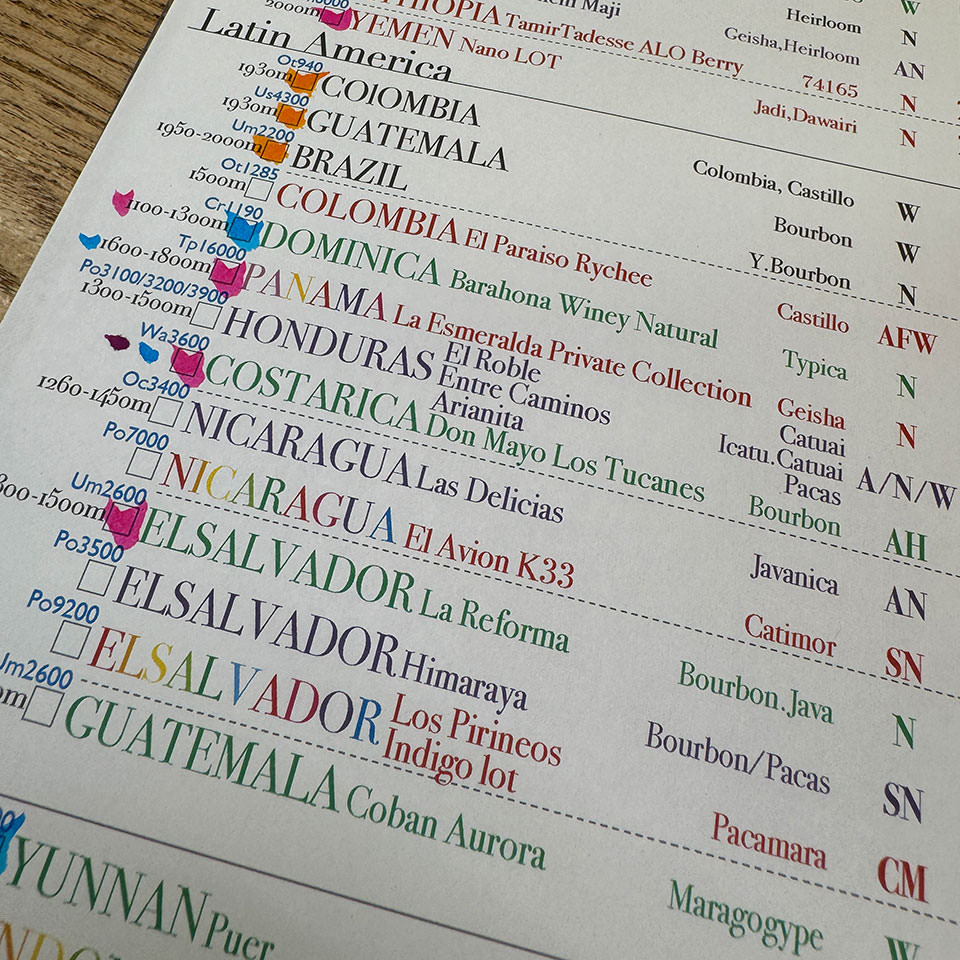 THIOPIA TamirTadesse ALO Berry 74165 N
Heirloom N
Geisha,Heirloom AN
2000m YEMEN Nano LOT Jadi,Dawairi N
Latin America
Ot940
1930m COlOMBIA Colombia, Castillo W
Us4300
1930m GUATEMALA Bourbon W
Um2200
1950-2000m BRAZIL Y.Bourbon N
Ot1285
1500m COLOMBIA El Paraiso Rychee Castillo AFW
Cr1190
1100-1300m DOMINICA Barahona Winey Natural Typica N
Tp16000
1600-1800m PANAMA La Esmeralda Private Collection Geisha N
Po3100/3200/3900
1300-1500m HONDURAS El Roble Catuai A/N/W
Entre Caminos Icatu.Catuai
Arianita Pacas
Wa3600
COSTARICA Don Mayo Los Tucanes Bourbon AH
Oc3400
1260-1450m NICARAGUA Las Delicias Javanica AN
Po7000
NICARAGUA El Avion K33 Catimor SN
Um2600
300-1500m ELSALVADOR La Reforma Bourbon.Java N
Po3500
ELSALVADOR Himaraya Bourbon/Pacas SN
Po9200
ELSALVADOR Los Pirineos Pacamara CM
Indigo lot
Um2600
0m GUATEMALA Coban Aurora Maragogype W
YUNNAN Puer